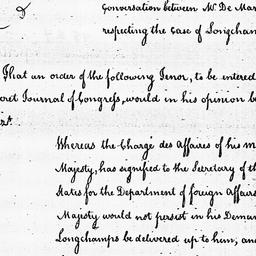 Conversation between Mr. De Mar
respecting the Case of Longcham
That an order of the following Tenor, to be entered
cret Journal of Congress, would in his opinion be
Whereas the Chargé des Affaires of his m
Majesty, has signified to the Secretary of th
States for the Department of foreign Affairs
Majesty would not persist in his Deman
Longchamps be delivered up to him, and